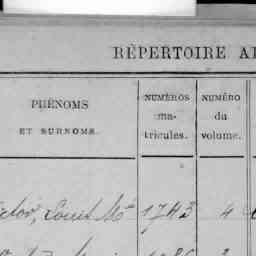 RÉPERTOIRE AL
PRÉNOMS
ET SURNOMS.
NUMÉROS
ma-
tricules.
NUMÉRO
du
volume.
ictor, Louis Mie 1743 4